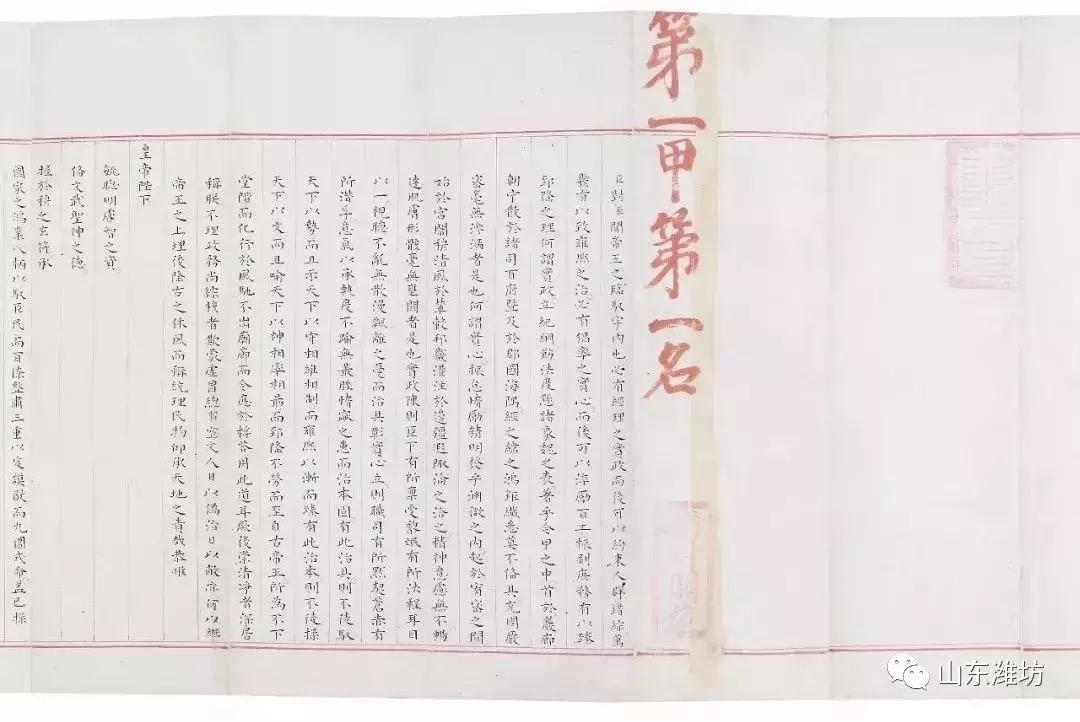 第一甲第一名
臣對臣聞帝王之臨馭宇内也必有經理之實政而後可以約束人群錯綜萬
幾有以致雍熙之治必有倡率之實心而後可以淬勵百工振刷庶務有以臻
郅隆之理何謂實政立紀綱飭法度懸諸象魏之表著乎令甲之中首於巖廊
朝宁散於諸司百府暨及於郡國海隅經之緯之鴻鉅纖悉莫不備具充周嚴
密毫無滲漏者是也何謂實心振怠惰勵精明發乎淵微之内起於宥密之間
始於宮闈穆清風於輦轂邦畿灌注於邊疆遐陬淪之洽之精神意慮無不暢
達肌膚形骸毫無壅閼者是也實政陳則臣下有所稟受黎氓有所法程耳目
以一視聽不亂無散漫飄離之憂而治具彰實心立則職司有所默契蒼赤有
所潛孚意氣以承軌度不踰無叢脞惰窳之患而治本固有此治具則不徒馭
天下以勢而且示天下以守相維相制而雍熙以漸而臻有此治本則不徒操
天下以文而且喻天下以神相率相勗而郅隆不勞而至自古帝王所為不下
堂階而化行於風馳不出廟廊而令應於桴答用此道耳厥後崇清淨者深居
稱朕不理政務尚綜核者欺蒙虛冒總事空文人日以偽治日以敝亦何以繼
帝王之上理後隆古之休風而稱統理民物仰承天地之責哉恭惟
皇帝陛下
毓聰明睿智之資
備文武聖神之德
握於穆之玄符承
國家之鴻業八柄以馭臣民而百僚整肅三重以定謨猷而九圍式命蓋已操
山东潍坊